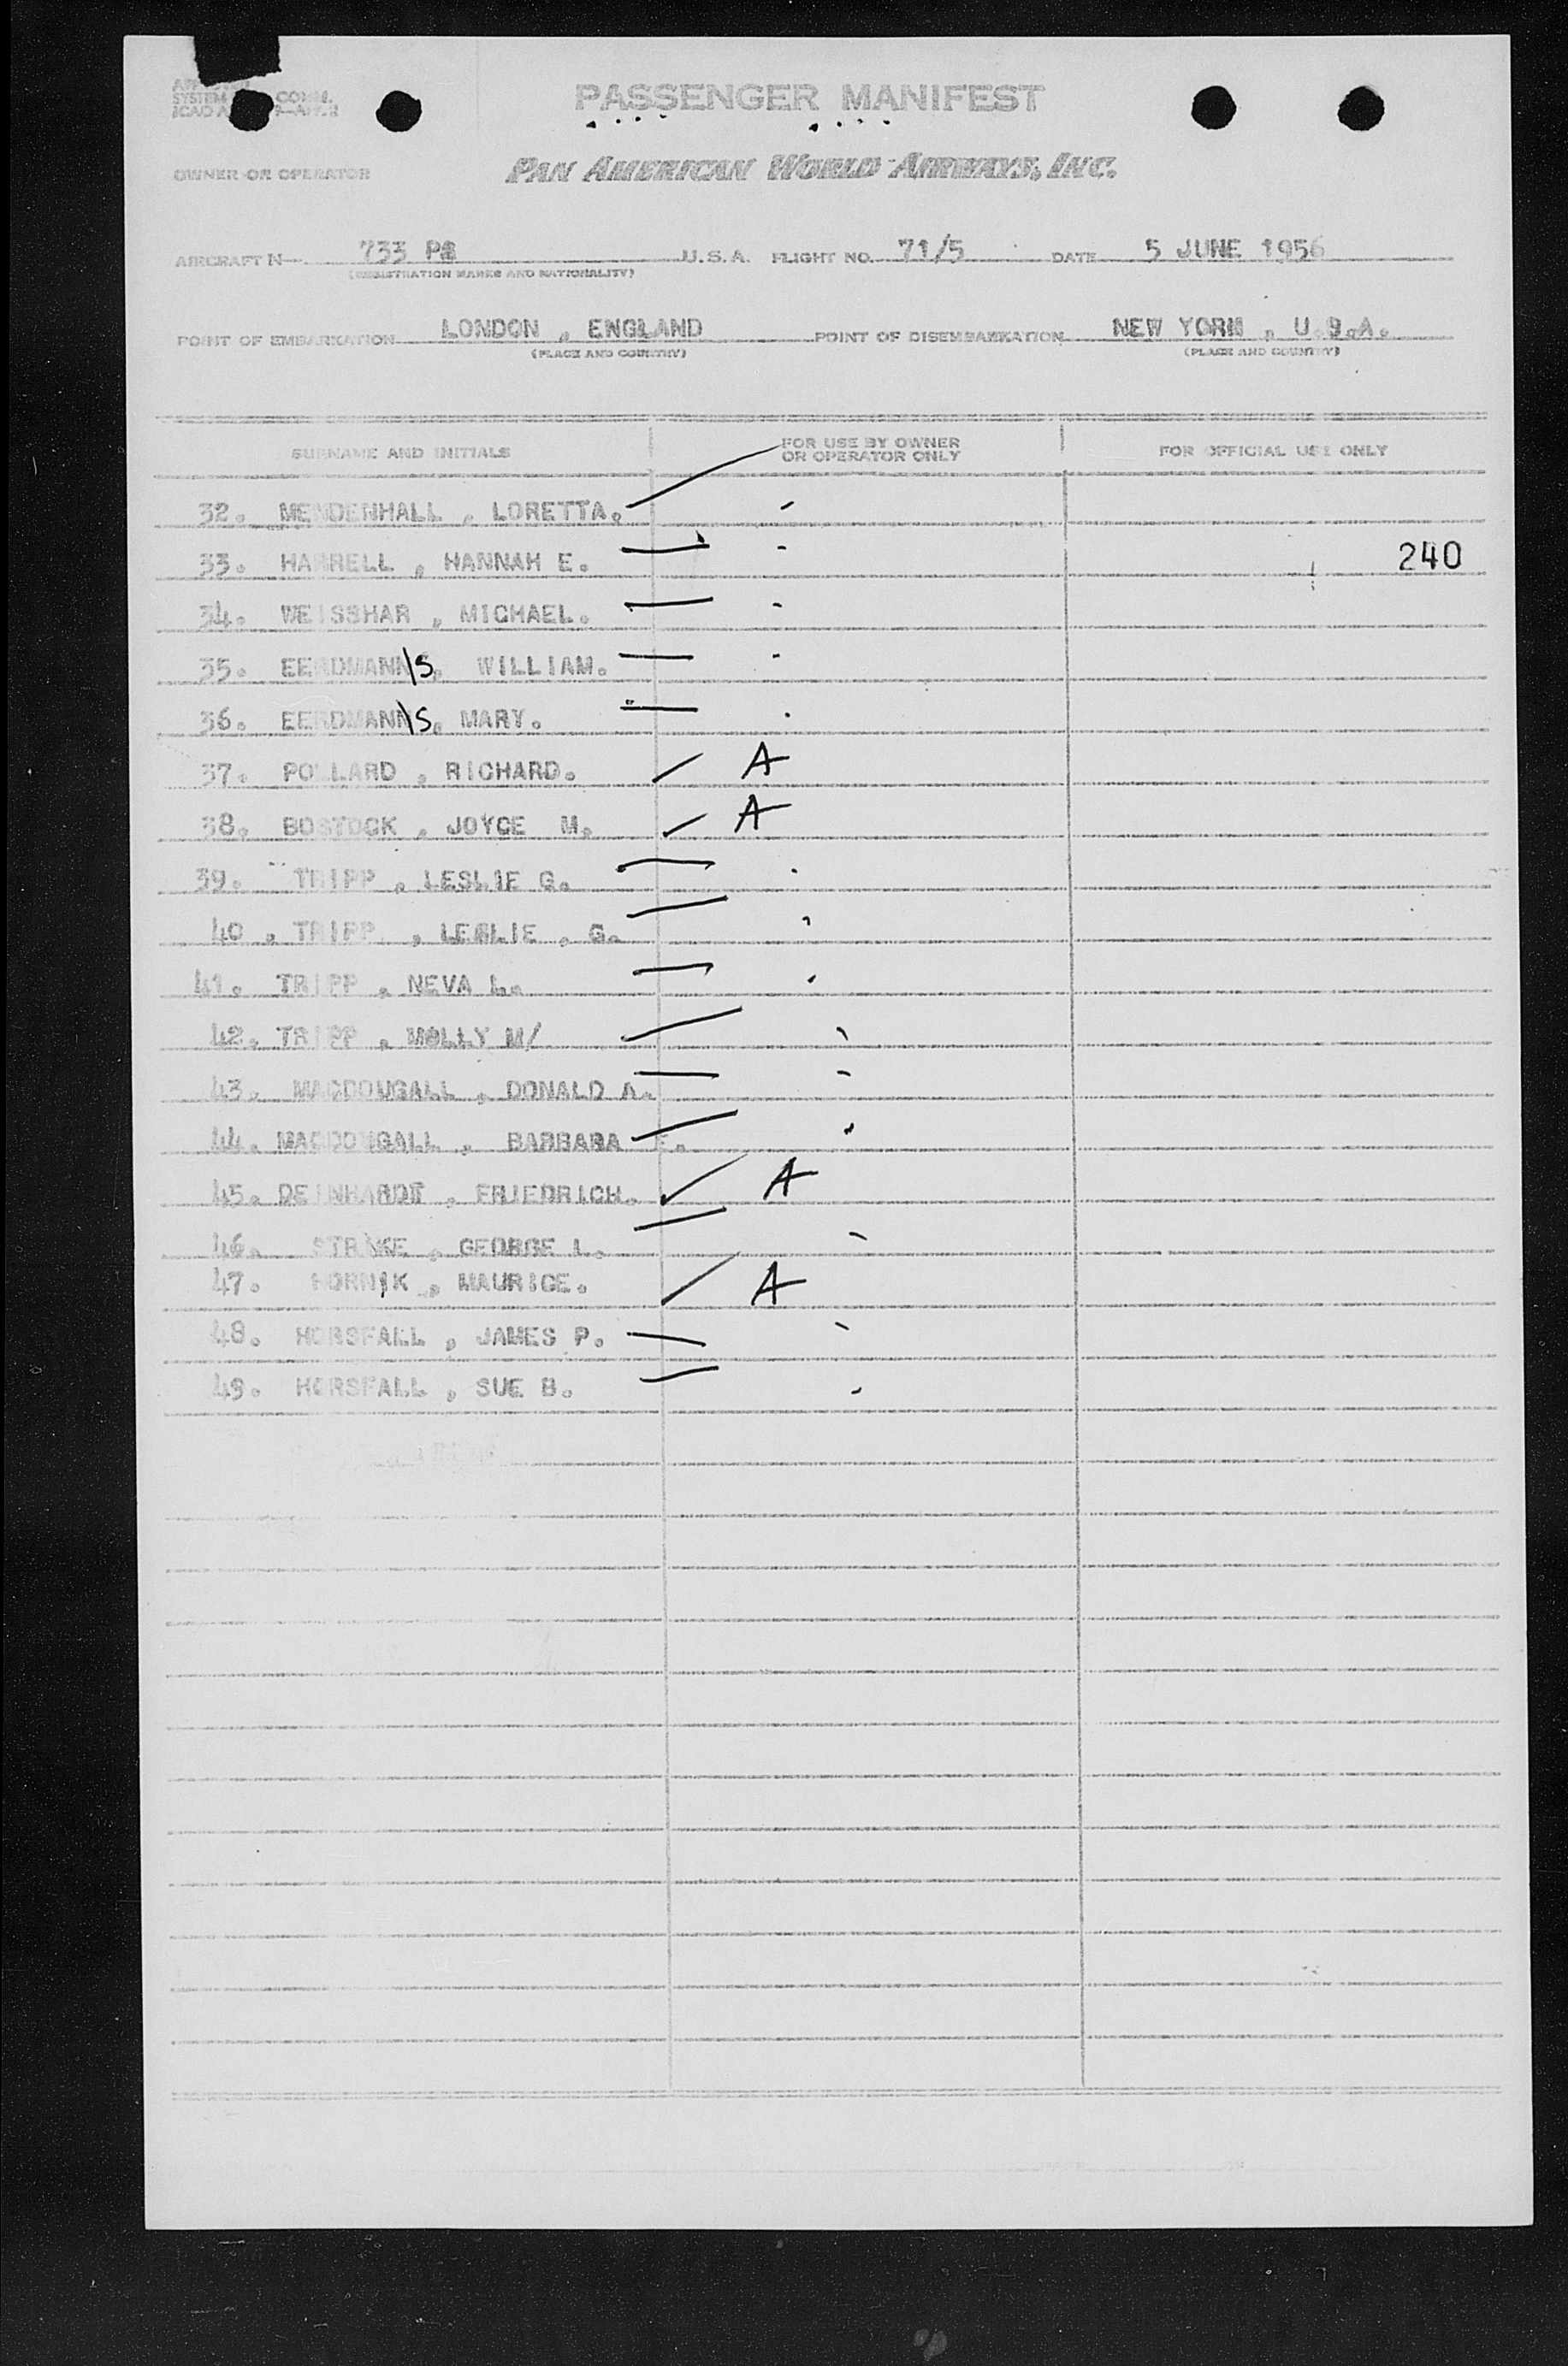 PASSENGER MANIFEST
OWNER OR OPERATOR PAN AMERICAN WORLD AIRWAYS, INC.
AIRCRAFT N 733 PA U.S.A. FLIGHT NO. 71/5 DATE 5 JUNE 1956
(REGISTRATION MARKS AND NATIONALITY)
POINT OF EMBARKATION LONDON , ENGLAND POINT OF DISEMBARKATION NEW YORK , U.S.A.
(PLACE AND COUNTRY) (PLACE AND COUNTRY)
SURNAME AND INITIALS FOR USE BY OWNER OR OPERATOR ONLY FOR OFFICIAL USE ONLY
32. MENDENHALL , LORETTA.
33. HARRELL , HANNAH E. 240
34. WEISSHAR , MICHAEL.
35. EERDMANNS, WILLIAM.
36. EERDMANNS, MARY.
37. POLLARD , RICHARD. A
38. BOSTOCK , JOYCE M. A
39. TRIPP , LESLIE G.
40 , TRIPP , LESLIE , G.
41. TRIPP , NEVA L.
42. TRIPP , MOLLY M/
43. MACDOUGALL , DONALD A.
44. MACDOUGALL , BARBARA E.
45. DEINHARDT , FRIEDRICH. A
46. STRYKE , GEORGE L.
47. HORNIK , MAURICE. A
48. HORSFALL , JAMES P.
49. HORSFALL , SUE B.